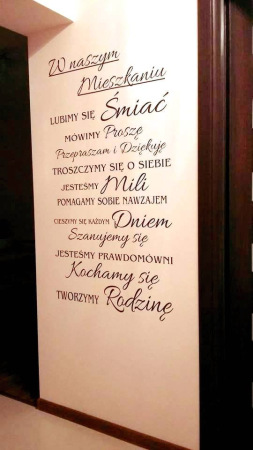 W naszym
Mieszkaniu
LUBIMY SIĘ Śmiać
MÓWIMY Proszę
Przepraszam i Dziękuje
TROSZCZYMY SIĘ O SIEBIE
JESTEŚMY Mili
POMAGAMY SOBIE NAWZAJEM
CIESZYMY SIĘ KAŻDYM Dniem
Szanujemy się
JESTEŚMY PRAWDOMÓWNI
Kochamy się
TWORZYMY Rodzinę